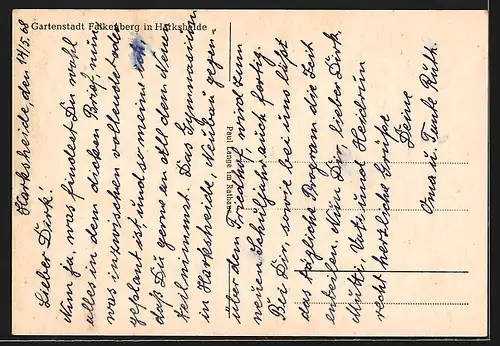 Gartenstadt Falkenberg in Harksheide
Harksheide, den 14/5.68
Lieber Dirk!
Nun ja, was findest Du wohl
alles in dem dicken Brief, nun
was inzwischen vollendet oder
geplant ist, und er meint
daß Du gerne an all dem Neuen
teilnimmst. Das Gymnasium
in Harksheide, Neubau gegen-
über dem Friedhof, wird zum
neuen Schuljahr auch fertig.
Bei Dir, sowie bei uns läßt
das tägliche Program die Zeit
enteilen. Nun Dir, lieber Dirk,
Mutti, Vati und Heidrin
recht herzliche Grüße
Deine
Oma u. Tante Ruth.
Paul Lange im Rathaus